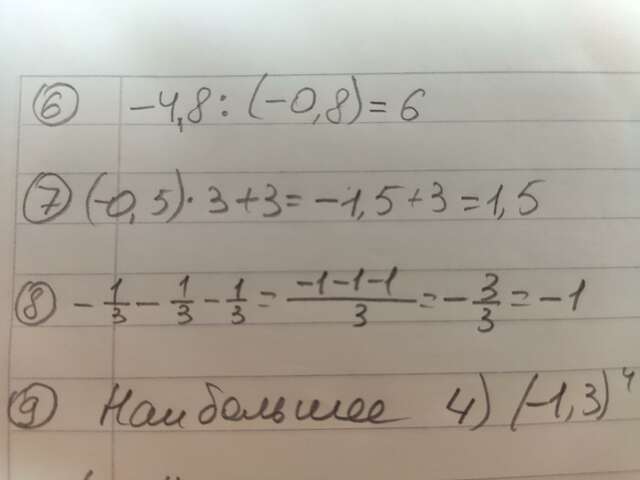 ⑥ -4,8 : (-0,8) = 6
⑦ (-0,5) · 3 + 3 = -1,5 + 3 = 1,5
⑧ - 1/3 - 1/3 - 1/3 = (-1-1-1)/3 = - 3/3 = -1
⑨ Наибольшее 4) (-1,3)⁴